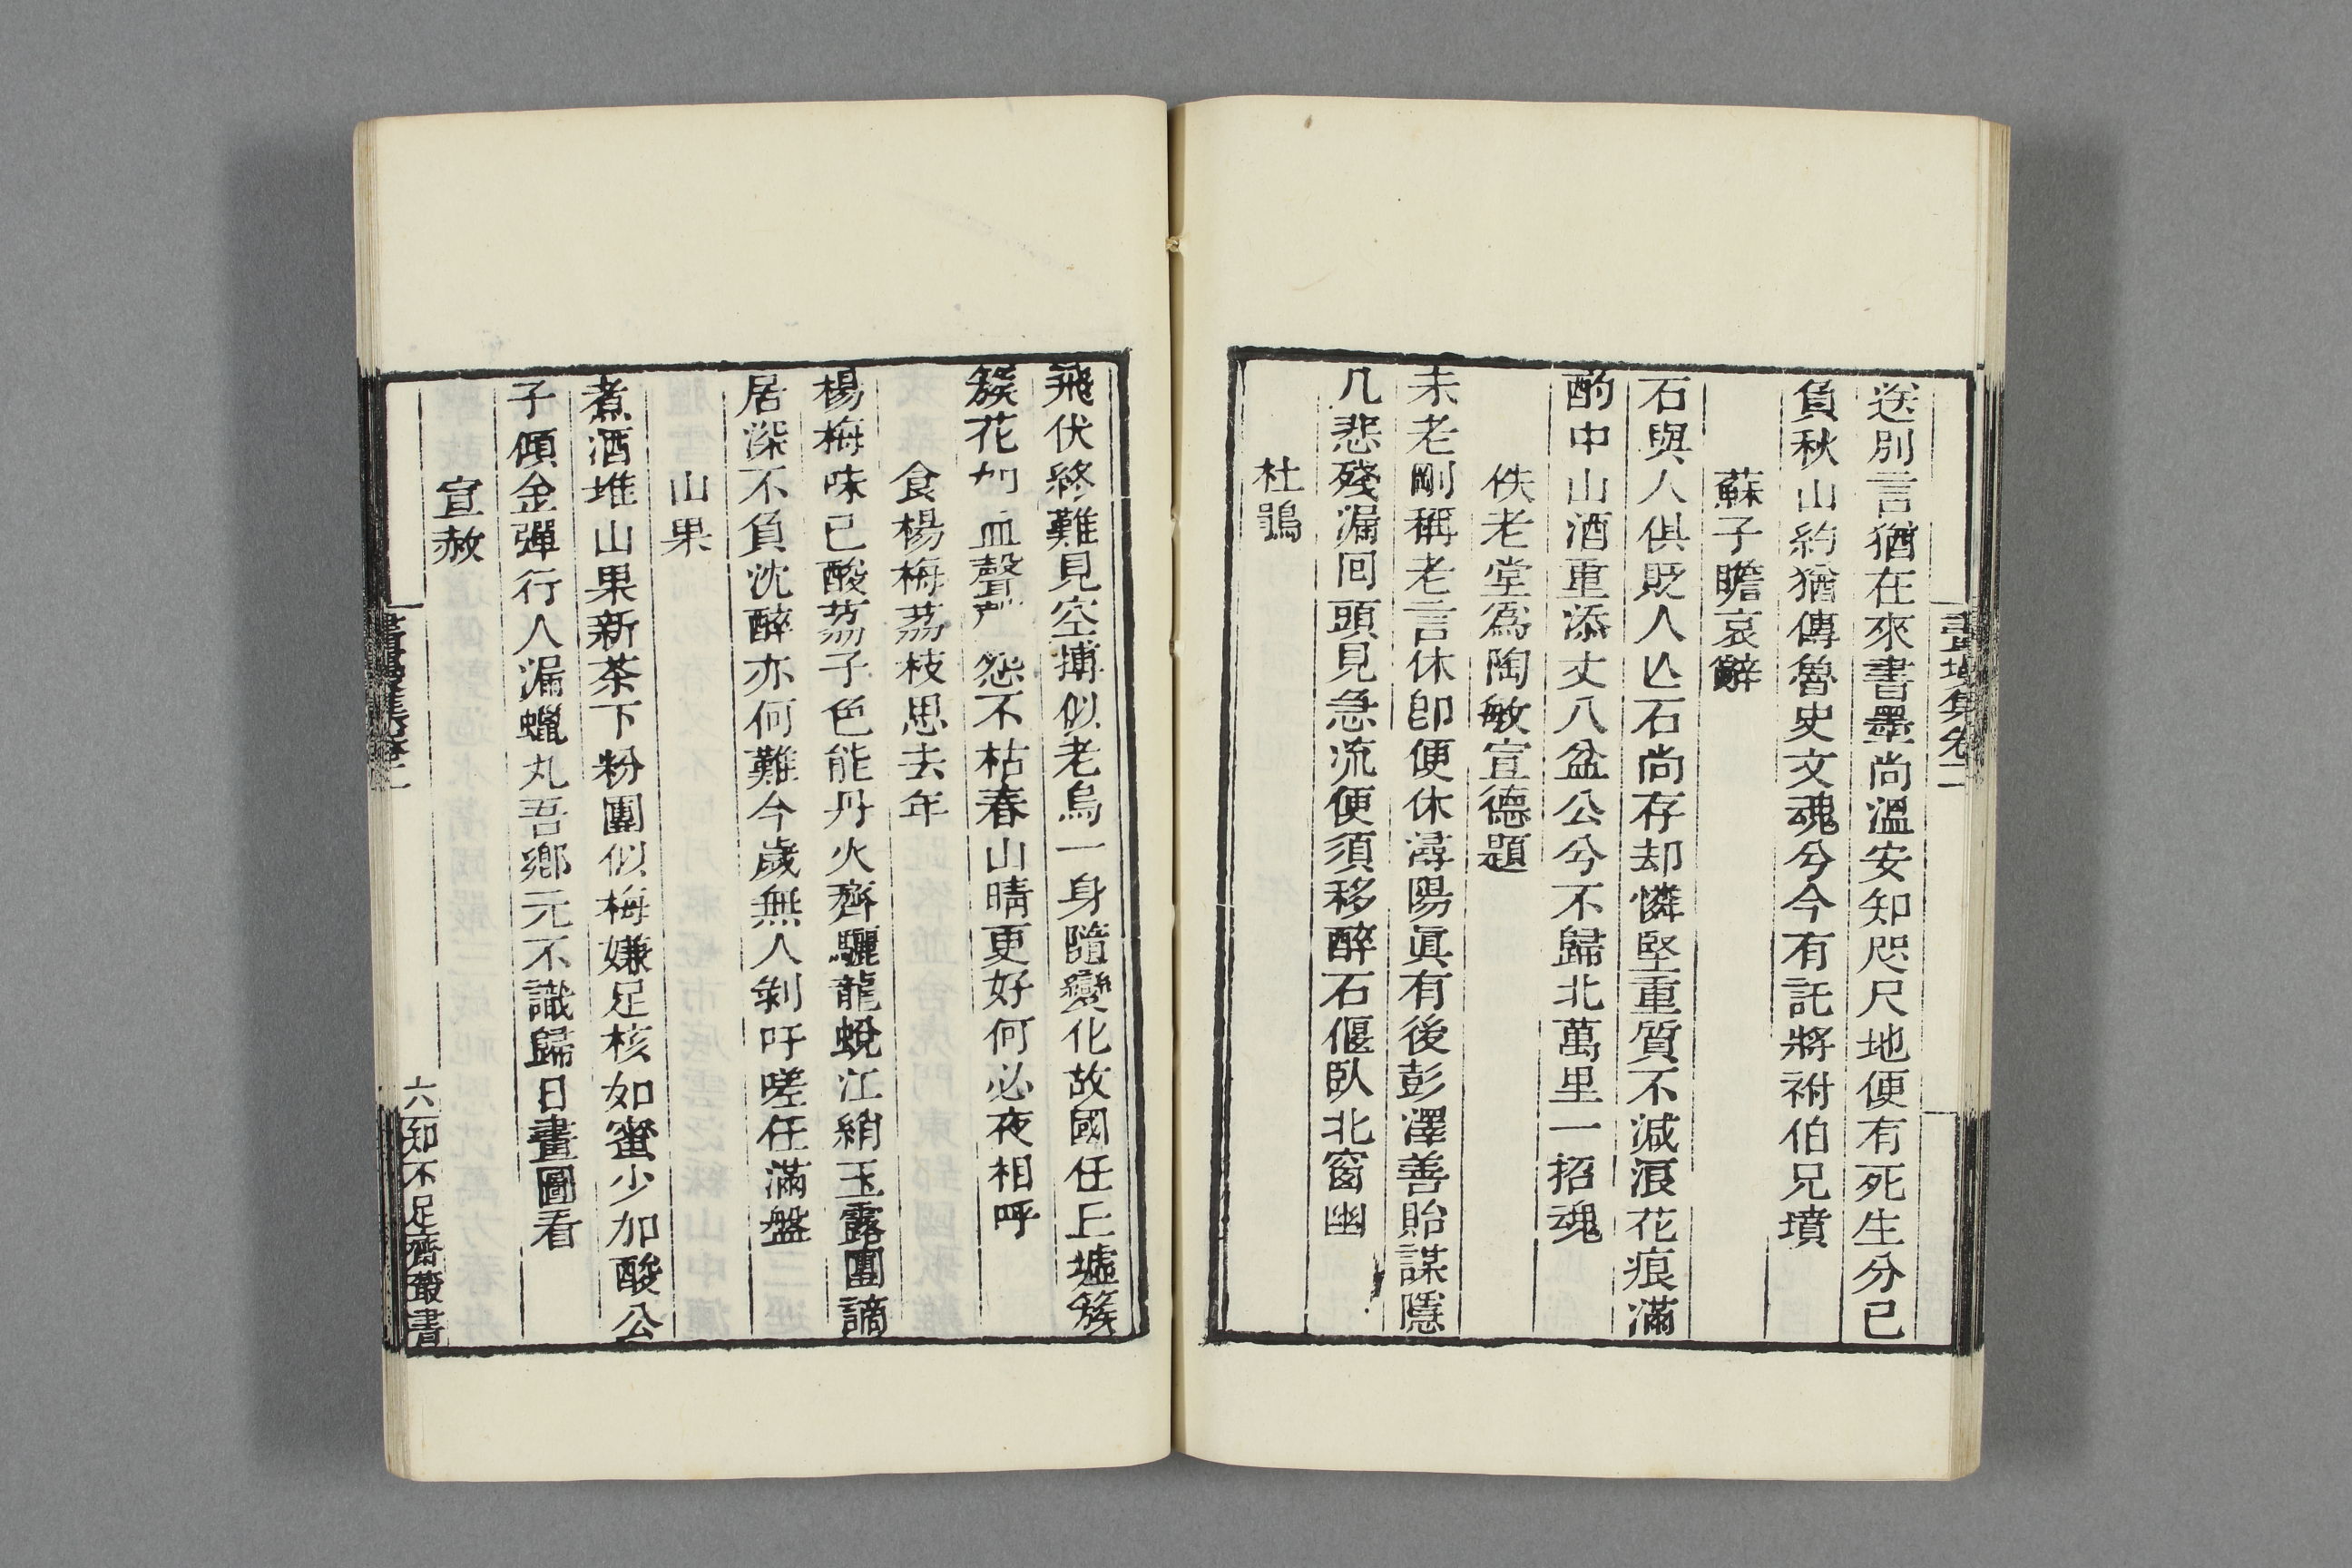 畫墁集卷二
送別言猶在來書墨尚溫安知咫尺地便有死生分已
負秋山約猶傳魯史文魂兮今有託將祔伯兄墳
蘇子瞻哀辭
石與人俱貶人亾石尚存却憐堅重質不減浪花痕滿
酌中山酒重添丈八盆公兮不歸北萬里一招魂
佚老堂爲陶敏宣德題
未老剛稱老言休卽便休潯陽眞有後彭澤善貽謀隱
几悲殘漏回頭見急流便須移醉石偃臥北窗幽
杜鵑
飛伏終難見空摶似老烏一身隨變化故國任丘墟簇
簇花如血聲聲怨不枯春山晴更好何必夜相呼
食楊梅荔枝思去年
楊梅味已酸荔子色能丹火齊驪龍蛻江綃玉露團謫
居深不負沈醉亦何難今歲無人剝吁嗟任滿盤
山果
煮酒堆山果新茶下粉團似梅嫌足核如蜜少加酸公
子傾金彈行人漏蠟丸吾鄉元不識歸日畫圖看
宣赦
六
知不足齋叢書